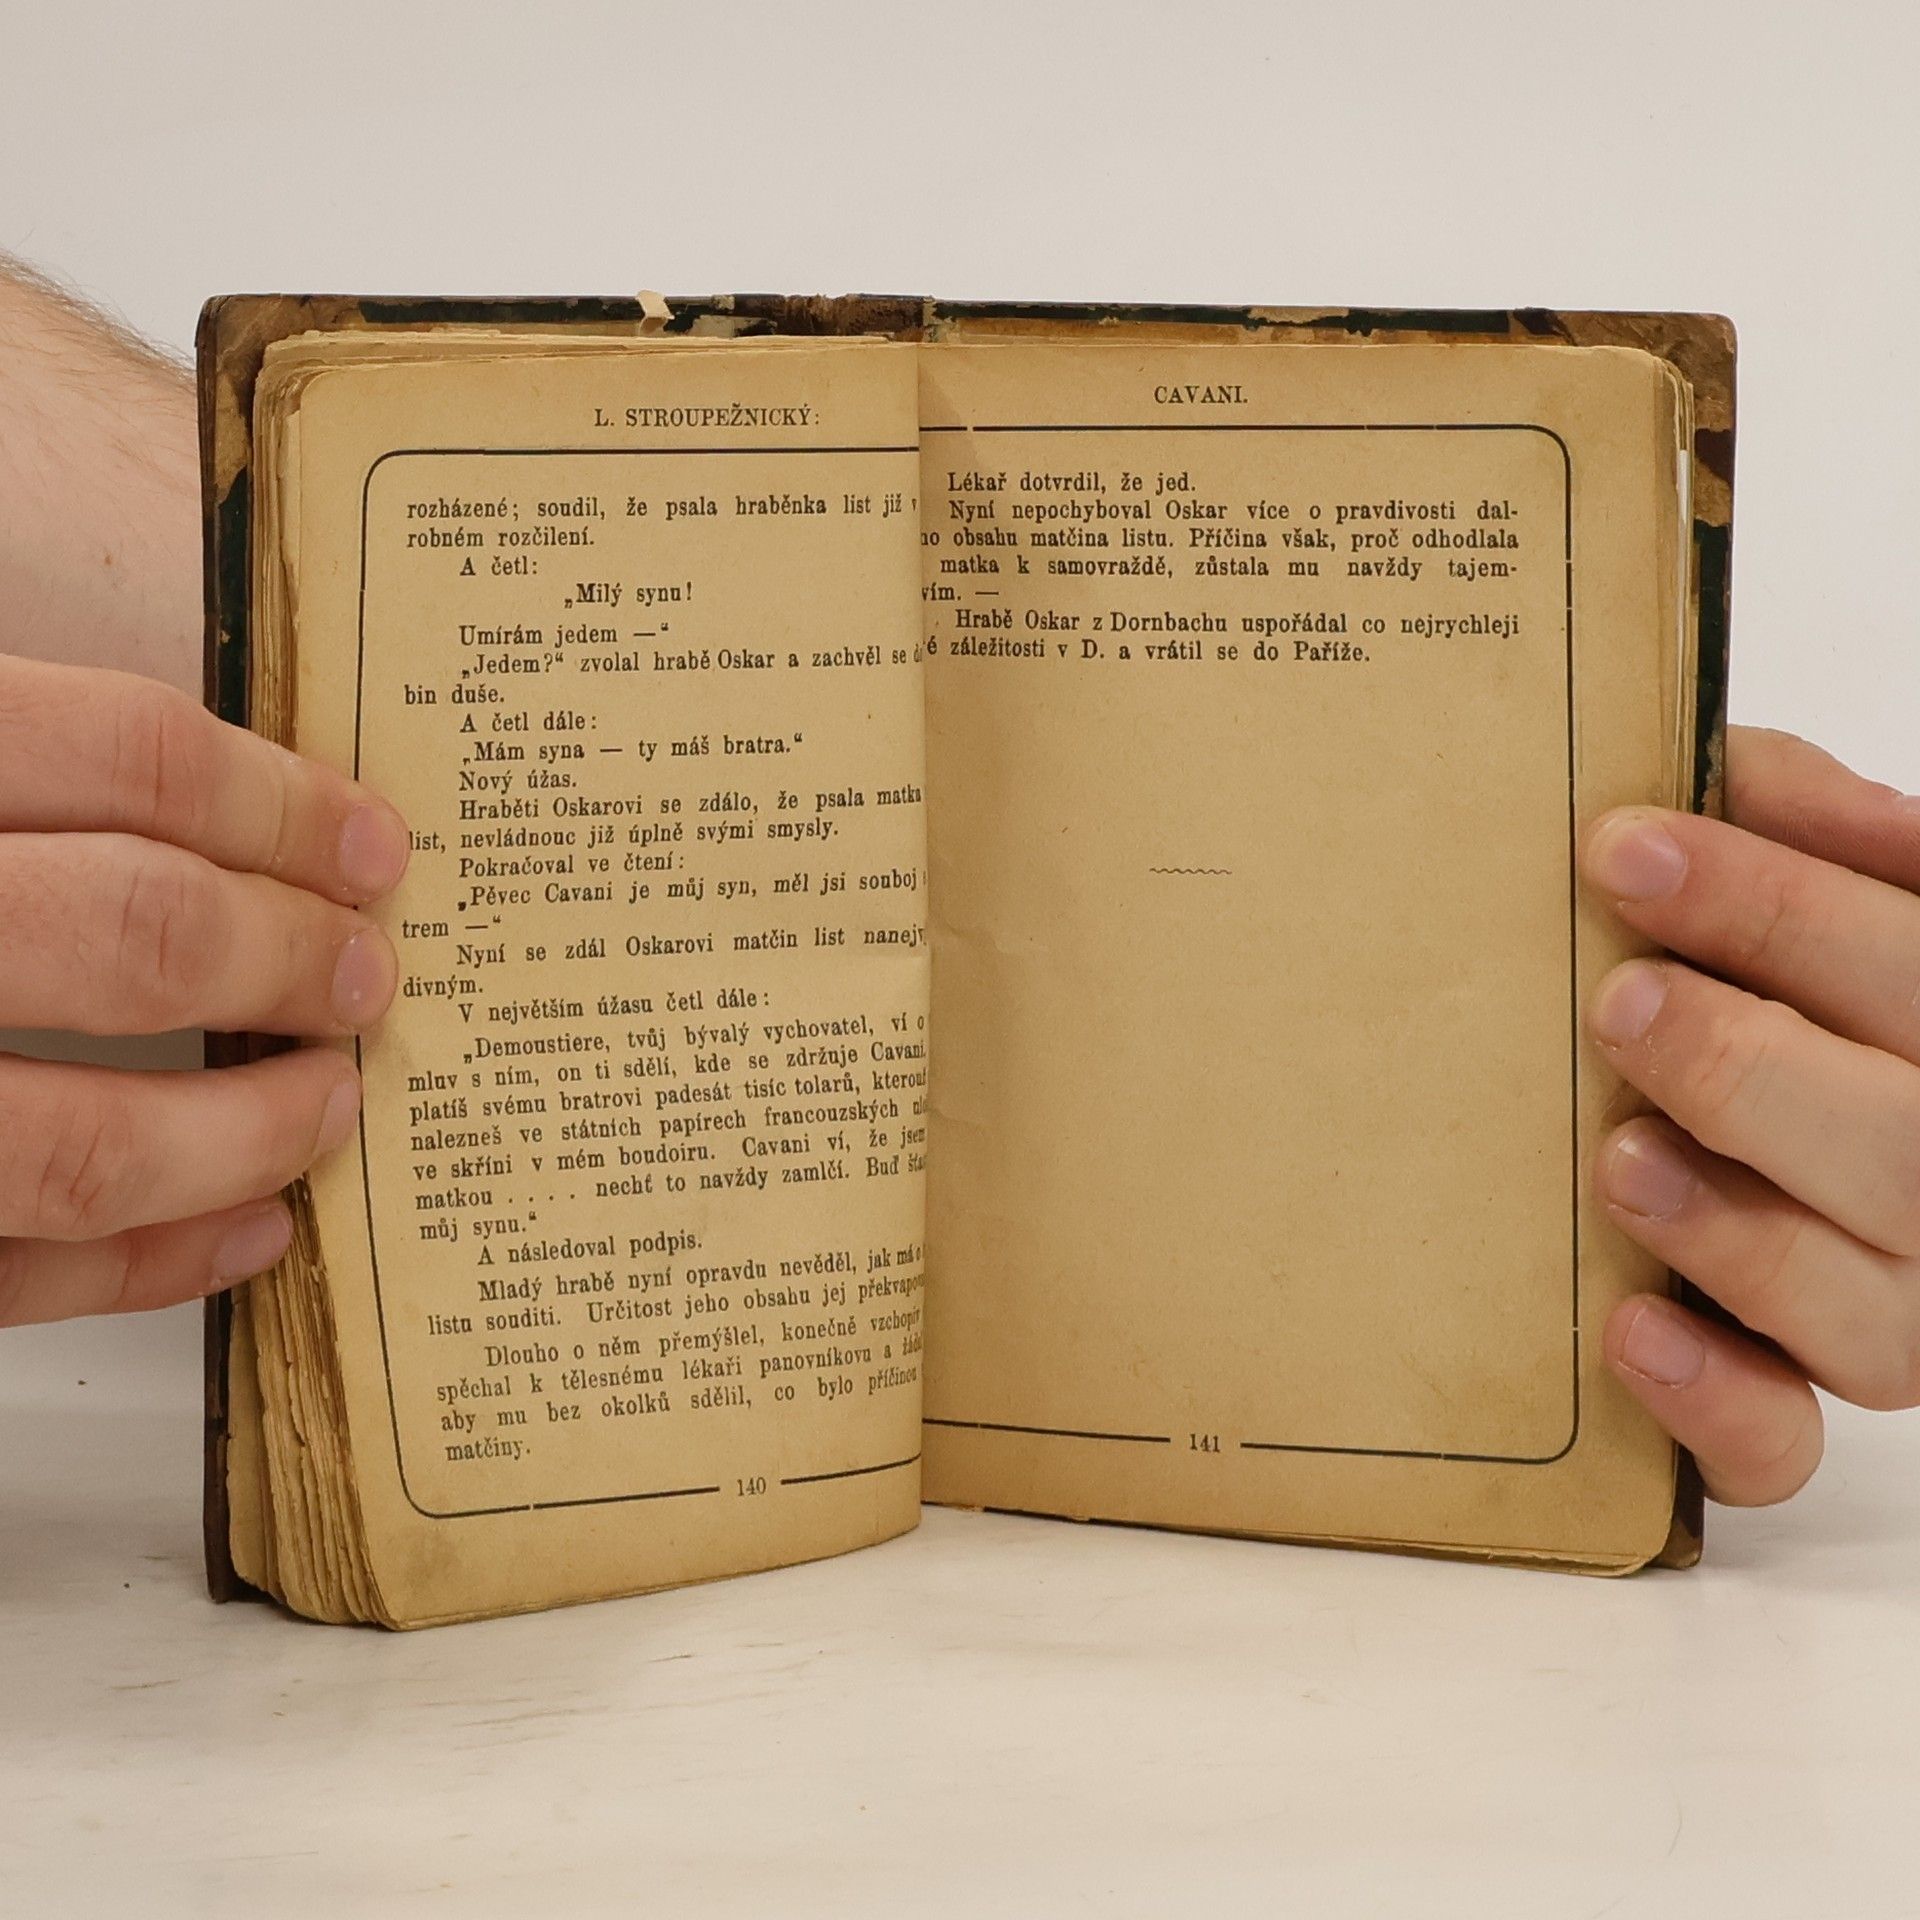 L. STROUPEŽNICKÝ:
rozházené; soudil, že psala hraběnka list již
robném rozčilení.
A četl:
„Milý synu!
Umírám jedem —“
„Jedem?“ zvolal hrabě Oskar a zachvěl se
bin duše.
A četl dále:
„Mám syna — ty máš bratra.“
Nový úžas.
Hraběti Oskarovi se zdálo, že psala matka
list, nevládnouc již úplně svými smysly.
Pokračoval ve čtení:
„Pěvec Cavani je můj syn, měl jsi souboj
trem —“
Nyní se zdál Oskarovi matčin list
divným.
V největším úžasu četl dále:
„Demoustiere, tvůj bývalý vychovatel, ví o
mluv s ním, on ti sdělí, kde se zdržuje Cavani.
platíš svému bratrovi padesát tisíc tolarů,
nalezneš ve státních papírech francouzských
ve skříni v mém boudoiru. Cavani ví, že jsem
matkou . . . . nechť to navždy zamlčí. Buď
můj synu.“
A následoval podpis.
Mladý hrabě nyní opravdu nevěděl, jak má o
listu souditi. Určitost jeho obsahu jej
Dlouho o něm přemýšlel, konečně
spěchal k tělesnému lékaři panovníkovu a
aby mu bez okolků sdělil, co bylo příčinou
matčiny.
140
CAVANI.
Lékař dotvrdil, že jed.
Nyní nepochyboval Oskar více o pravdivosti dal-
obsahu matčina listu. Příčina však, proč odhodlala
matka k samovraždě, zůstala mu navždy tajem-
vím. —
Hrabě Oskar z Dornbachu uspořádal co nejrychleji
záležitosti v D. a vrátil se do Paříže.
141